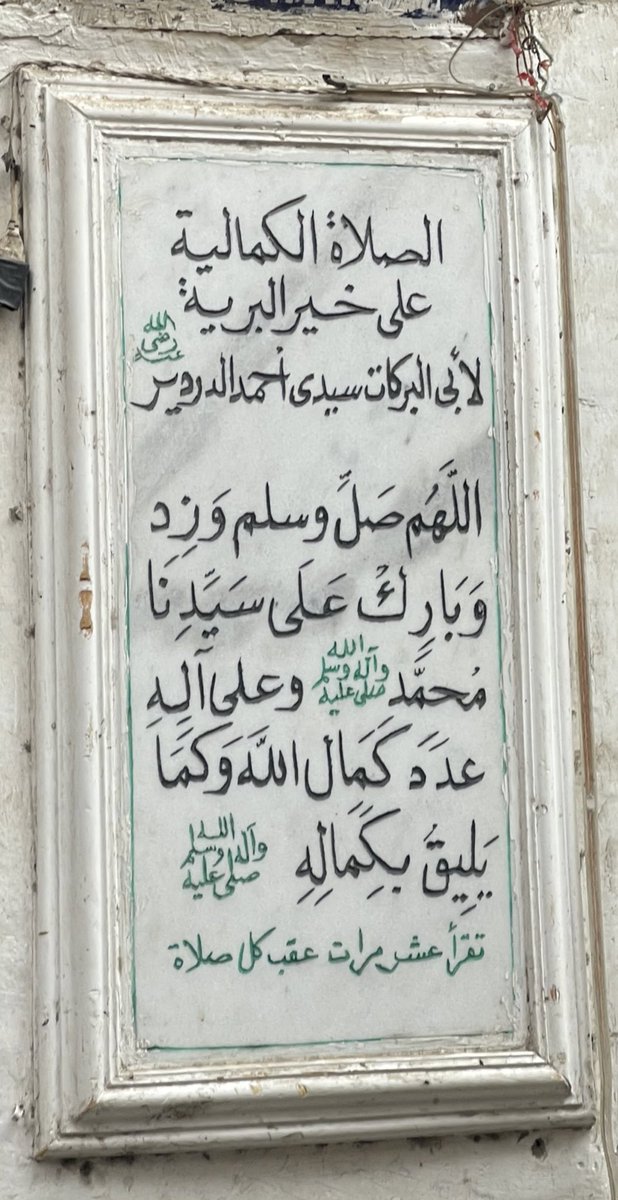 الصلاة الكمالية
على خير البرية
لأبى البركات سيدى أحمد الدردير رضى الله عنه
اللَّهُم صَلِّ وسلم وَزِد
وَبَارِكْ عَلَى سَيَّدِنَا
مُحمَّد صلى الله عليه وآله وسلم وعلى آلِهِ
عدَدَ كَمَال اللَّه وَكَمَا
يَلِيقُ بِكَمالِهِ صلى الله عليه وآله وسلم
تقرأ عشر مرات عقب كل صلاة